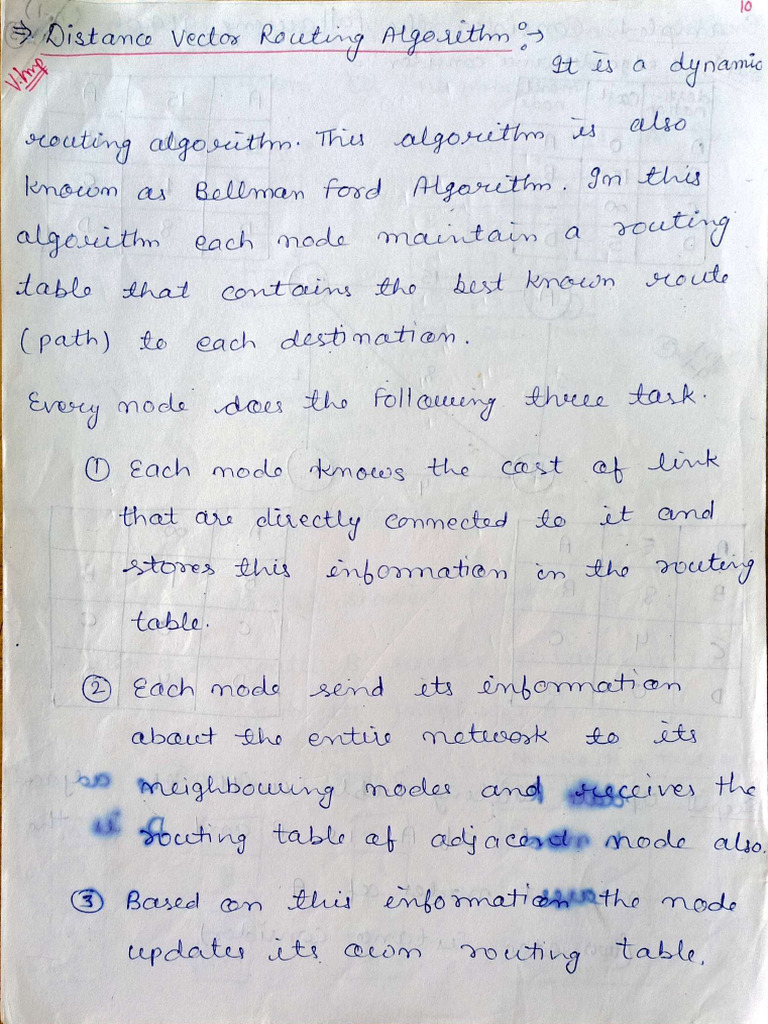 10
⇒ Distance Vector Routing Algorithm :→
V. Imp
It is a dynamic
routing algorithm. This algorithm is also
known as Bellman Ford Algorithm. In this
algorithm each node maintain a routing
table that contains the best known route
(path) to each destination.
Every node does the following three task.
① Each node knows the cost of link
that are directly connected to it and
stores this information in the routing
table.
② Each node send its information
about the entire network to its
neighbouring nodes and receives the
routing table of adjacent node also.
③ Based on this information the node
updates its own routing table.